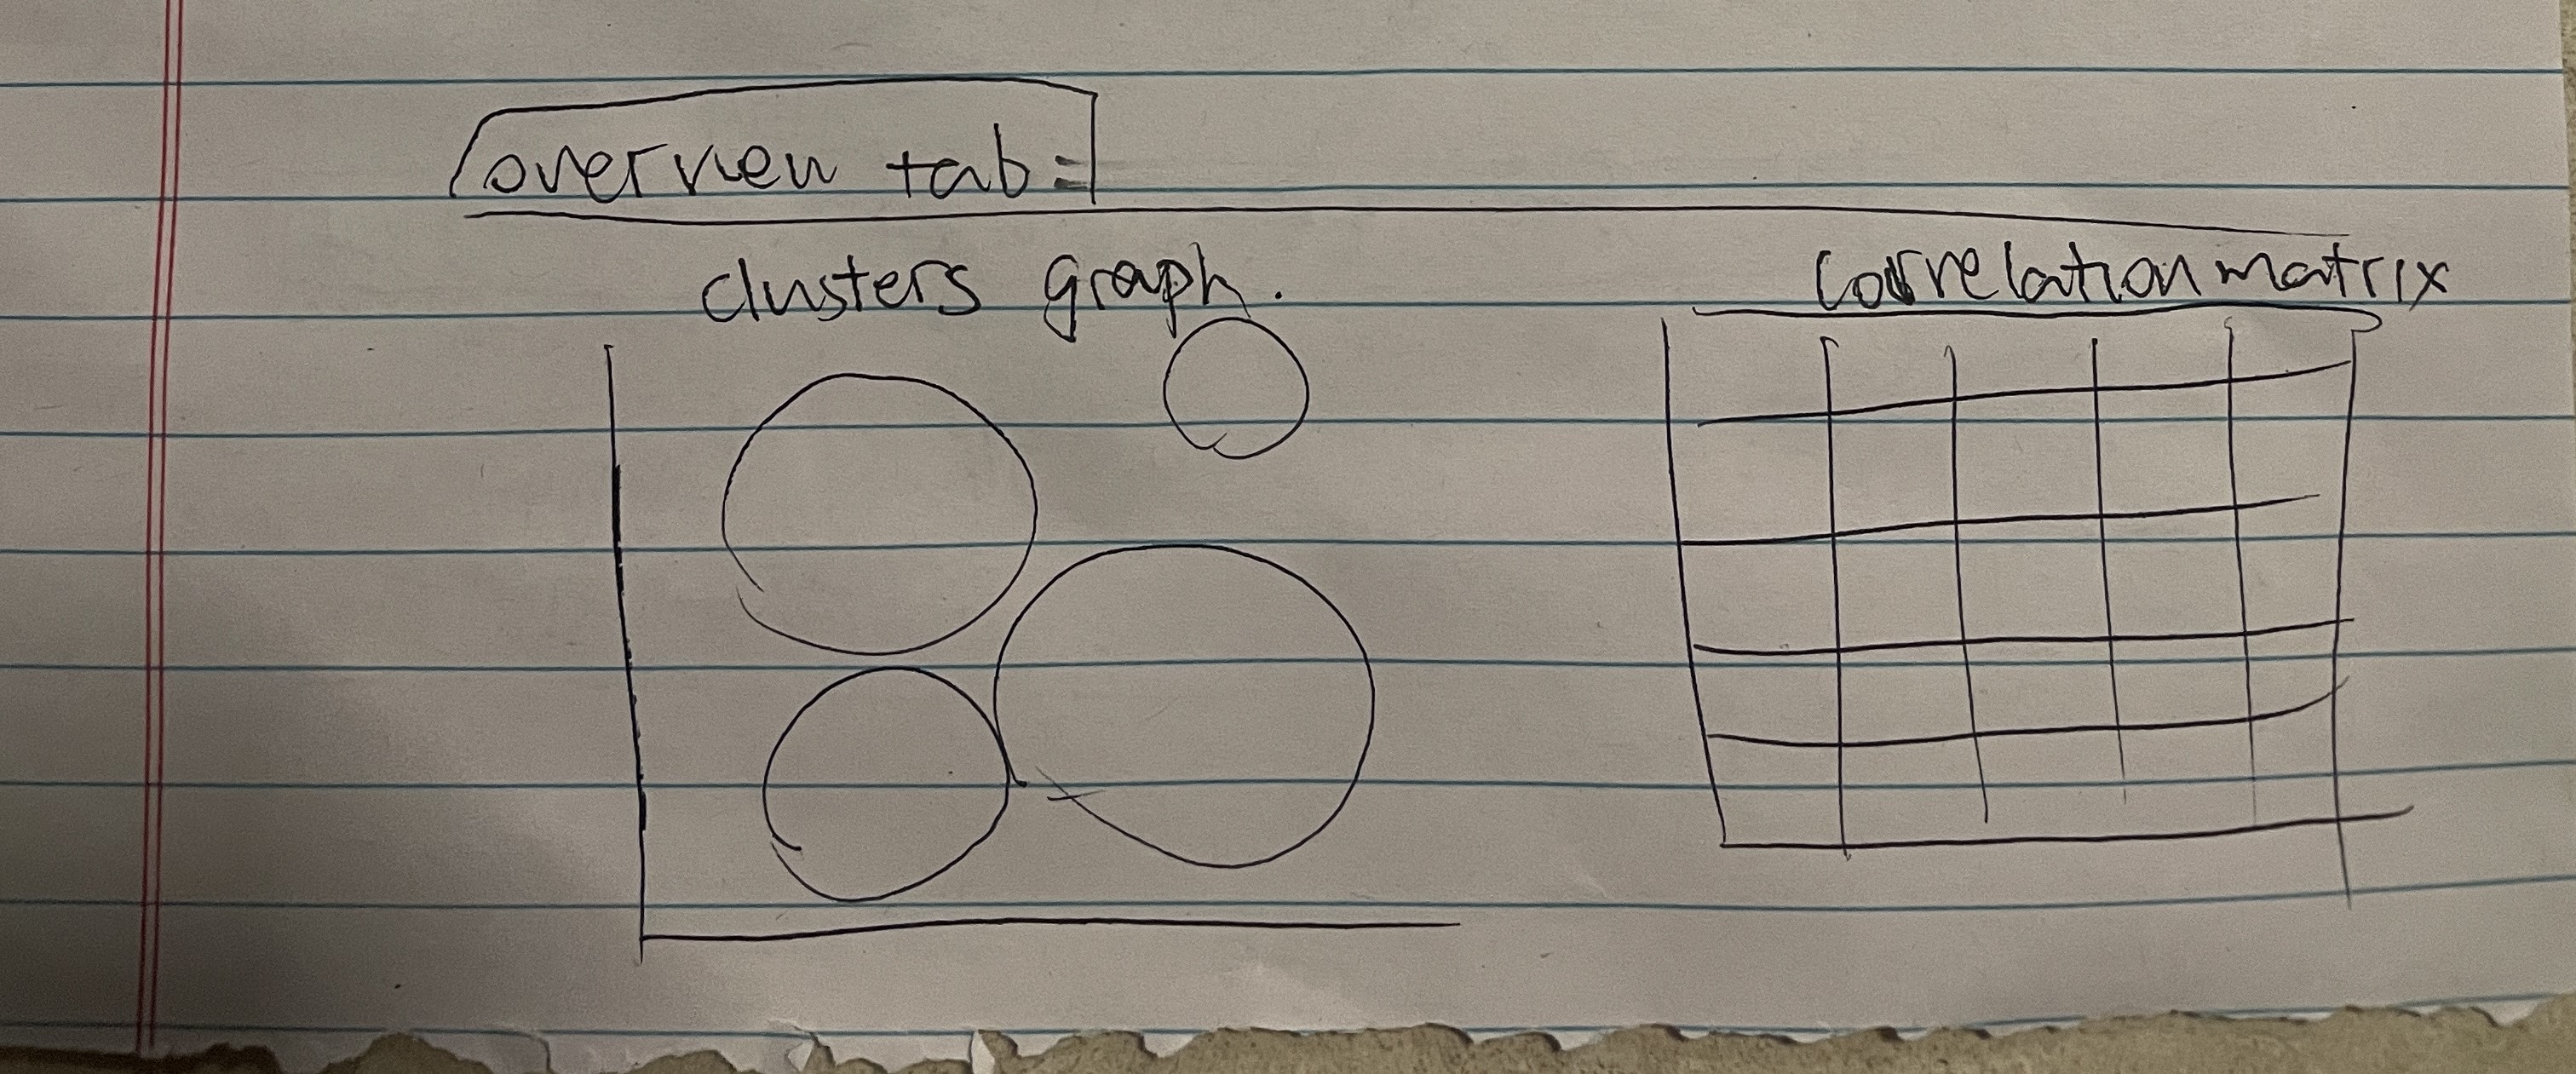 overview tab:
clusters graph.
correlation matrix